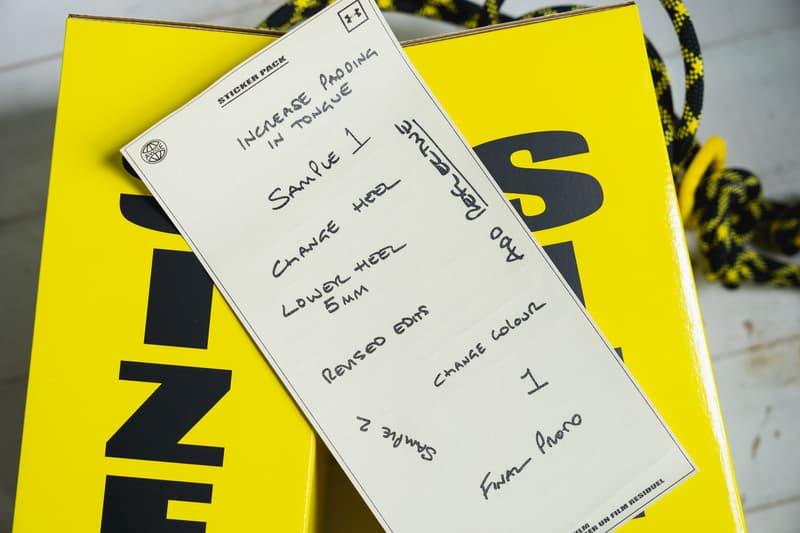 STICKER PACK
INCREASE PADDING
IN TONGUE
SAMPLE 1
ADD REFLECTIVE
CHANGE HEEL
LOWER HEEL
5MM
REVISED EDITS
CHANGE COLOUR
1
SAMPLE 2
FINAL PROTO
FILM
ER UN FILM RESIDUEL
SIZE
S